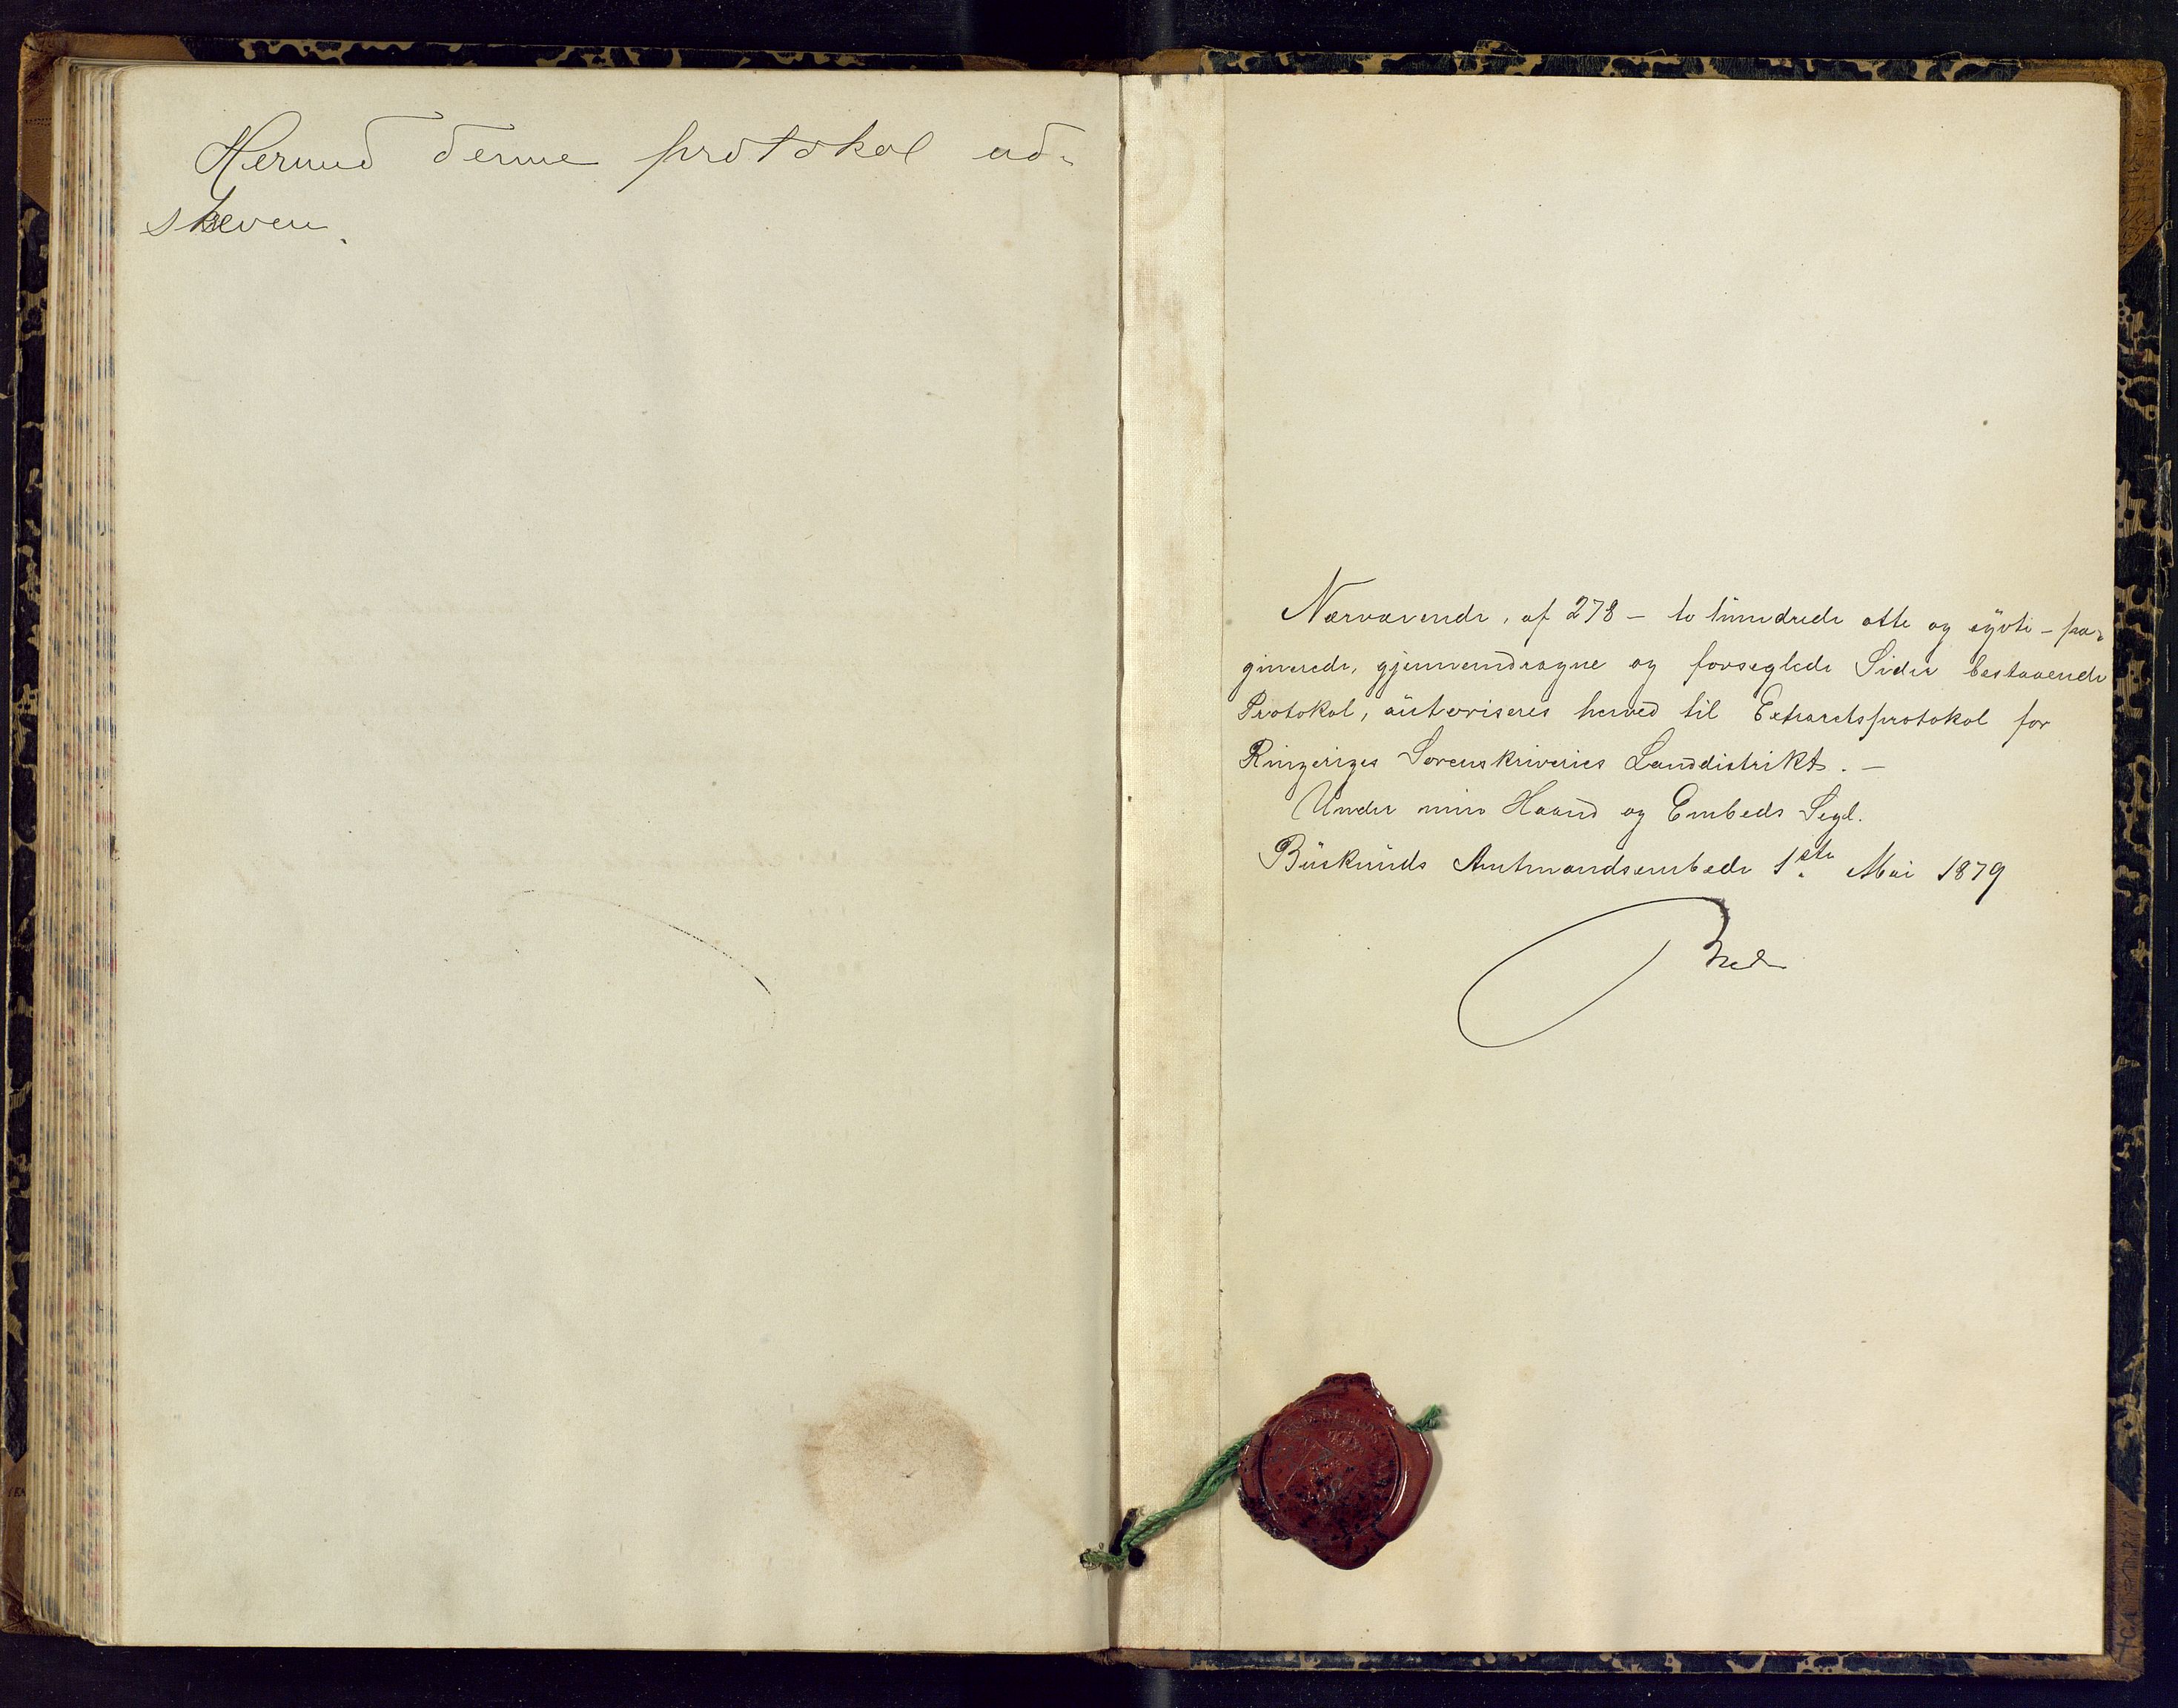 Hermed denne protokol ud-
skreven.
Nærværende, af 278 – to hundrede otte og sytti – pa-
ginerede, gjennemdragne og forseglede Sider bestaaende
Protokol, autoriseres herved til Extraretsprotokol for
Ringeriges Sorenskriveries Landdistrikt. –
Under min Haand og Embeds Segl.
Buskeruds Amtmandsembede 1ste Mai 1879